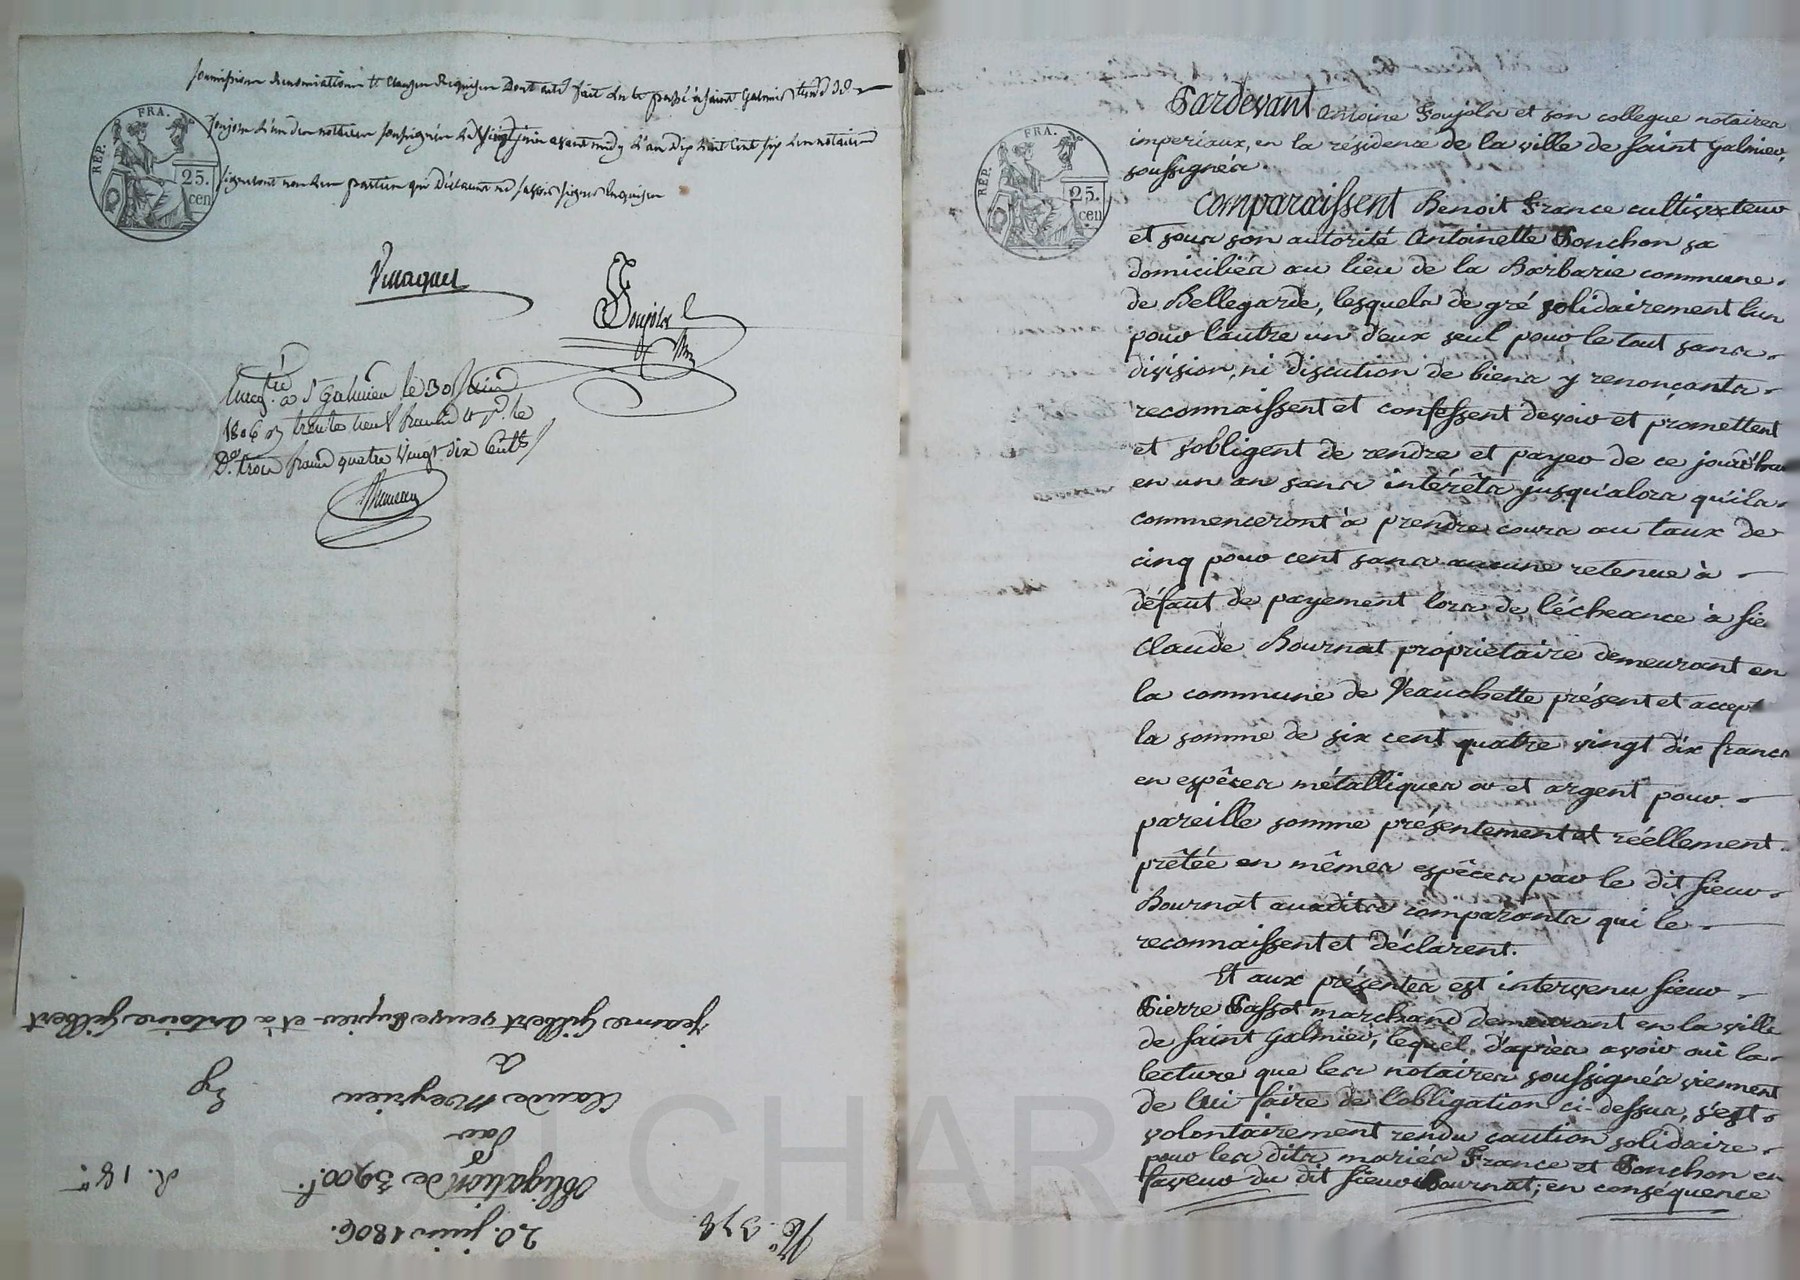 soumissions renonciations et clauses requises Dont acte fait lu et passé à saint Galmier
vingt juin avant midy l'an dix huit cent six les notaires
signeront non les parties qui déclarent ne savoir signer enquises
RÉP. FRA.
25.
cen
Villaques
Poujola
Enreg.tré à St Galmier le 30 Juin
1806 Rj trente neuf francs et pr. le
De. trois francs quatre vingt dix Cents
No. 378.
20. juin 1806.
Obligation de 3900. f.
d. 18
par
Claude Meyrieu
à
jeanne Gilbert veuve Cupieu et à Antoine Gilbert
RÉP. FRA.
25.
cen
Pardevant Antoine Poujola et son collegue notaires
imperiaux, en la résidence de la ville de saint Galmier,
soussignés.
Comparaissent Benoit France cultivateur
et sous son autorité Antoinette Ponchon sa
domiciliés au lieu de la Barbarie commune
de Bellegarde, lesquels de gré solidairement l'un
pour l'autre un d'eux seul pour le tout sans
division, ni discution de biens y renonçants
reconnaissent et confessent devoir et promettent
et s'obligent de rendre et payer de ce jourd'hui
en un an sans intérêts jusqu'alors qu'ils
commenceront à prendre cours au taux de
cinq pour cent sans aucune retenue à
défaut de payement lors de l'écheance à sie
Claude Bournat propriétaire demeurant en
la commune de Veauchette présent et accept
la somme de six cent quatre vingt dix francs
en espêces métalliques or et argent pour
pareille somme présentement et réellement
prêtée en mêmes espêces par le dit sieur
Bournat auxdits comparants qui le
reconnaissent et déclarent.
Et aux présentes est intervenu sieur
Pierre Passot marchand demeurant en la ville
de saint Galmier, lequel, d'après avoir oui la
lecture que les notaires soussignés viennent
de lui faire de l'obligation ci-dessus, s'est
volontairement rendu caution solidaire
pour les dits mariés France et Ponchon en
faveur du dit sieur Bournat; en conséquence